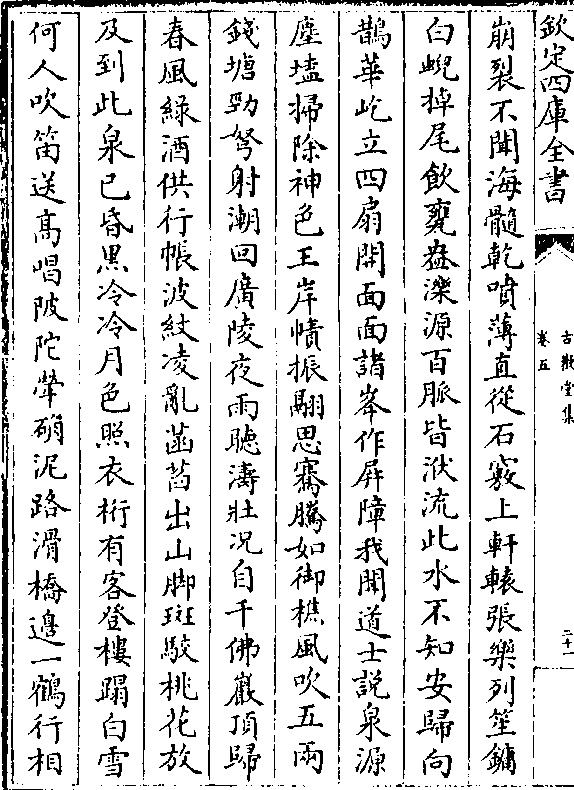 欽定四庫全書
古歡堂集
卷五
二十一
崩裂不聞海髓乾噴薄直從石竅上軒轅張樂列笙鏞
白蜺掉尾飲甕盎濼源百脈皆洑流此水不知安歸向
鵲華屹立四扇開面面諸峯作屏障我聞道士說泉源
塵壒掃除神色王岸幘振翮思騫騰如御樵風吹五兩
錢塘勁弩射潮回廣陵夜雨聽濤壯況自千佛巖頂歸
春風綠酒供行帳波紋凌亂菡萏出山脚斑駮桃花放
及到此泉已昏黒冷冷月色照衣桁有客登樓蹋白雪
何人吹笛送髙唱陂陀犖确泥路滑橋邊一鶴行相